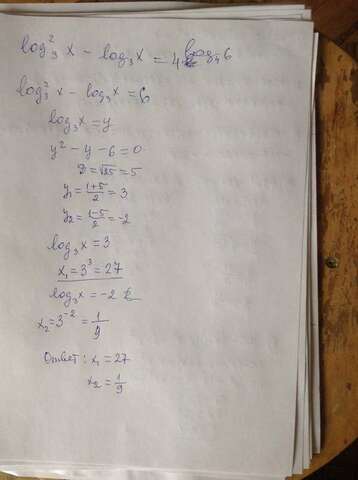 log₃² x − log₃ x = 4^log₄ 6
log₃² x − log₃ x = 6
log₃ x = y
y² − y − 6 = 0
D = √25 = 5
y₁ = (1+5)/2 = 3
y₂ = (1−5)/2 = −2
log₃ x = 3
x₁ = 3³ = 27
log₃ x = −2
x₂ = 3⁻² = 1/9
Ответ: x₁ = 27
x₂ = 1/9